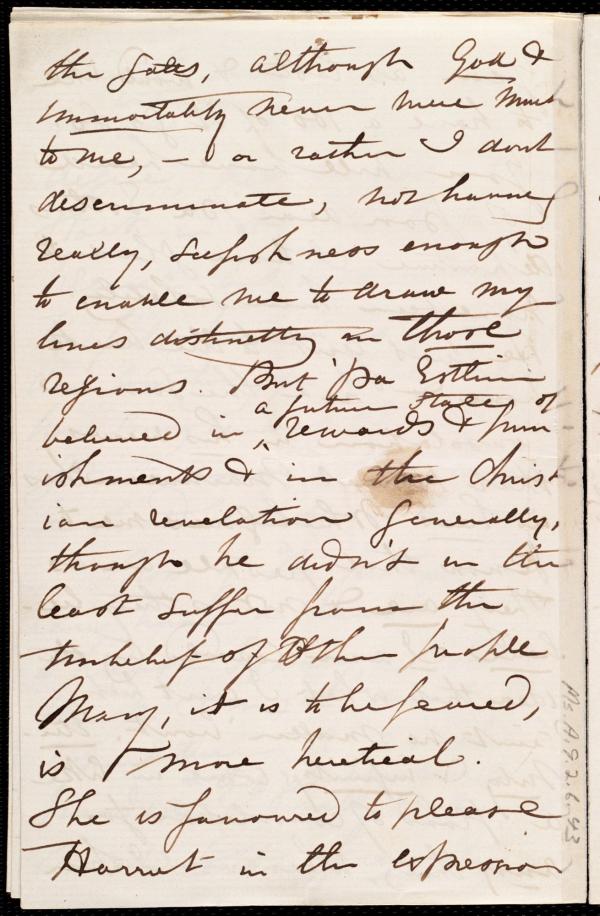 the gates, although God &
immortality never were much
to me, — or rather I dont
descriminate, not having
really, selfishness enough
to enable me to draw my
lines distinctly in those
regions. But 'Pa Estlin
a future state of
believed in ^ rewards & pun
ishments & in the Christ
ian revelation generally,
though he didn't in the
least suffer from the
unbelief of other people
Mary, it is to be feared,
is more heretical.
She is favoured to please
Harriet in the expression
Ms.A.9.2.6.43